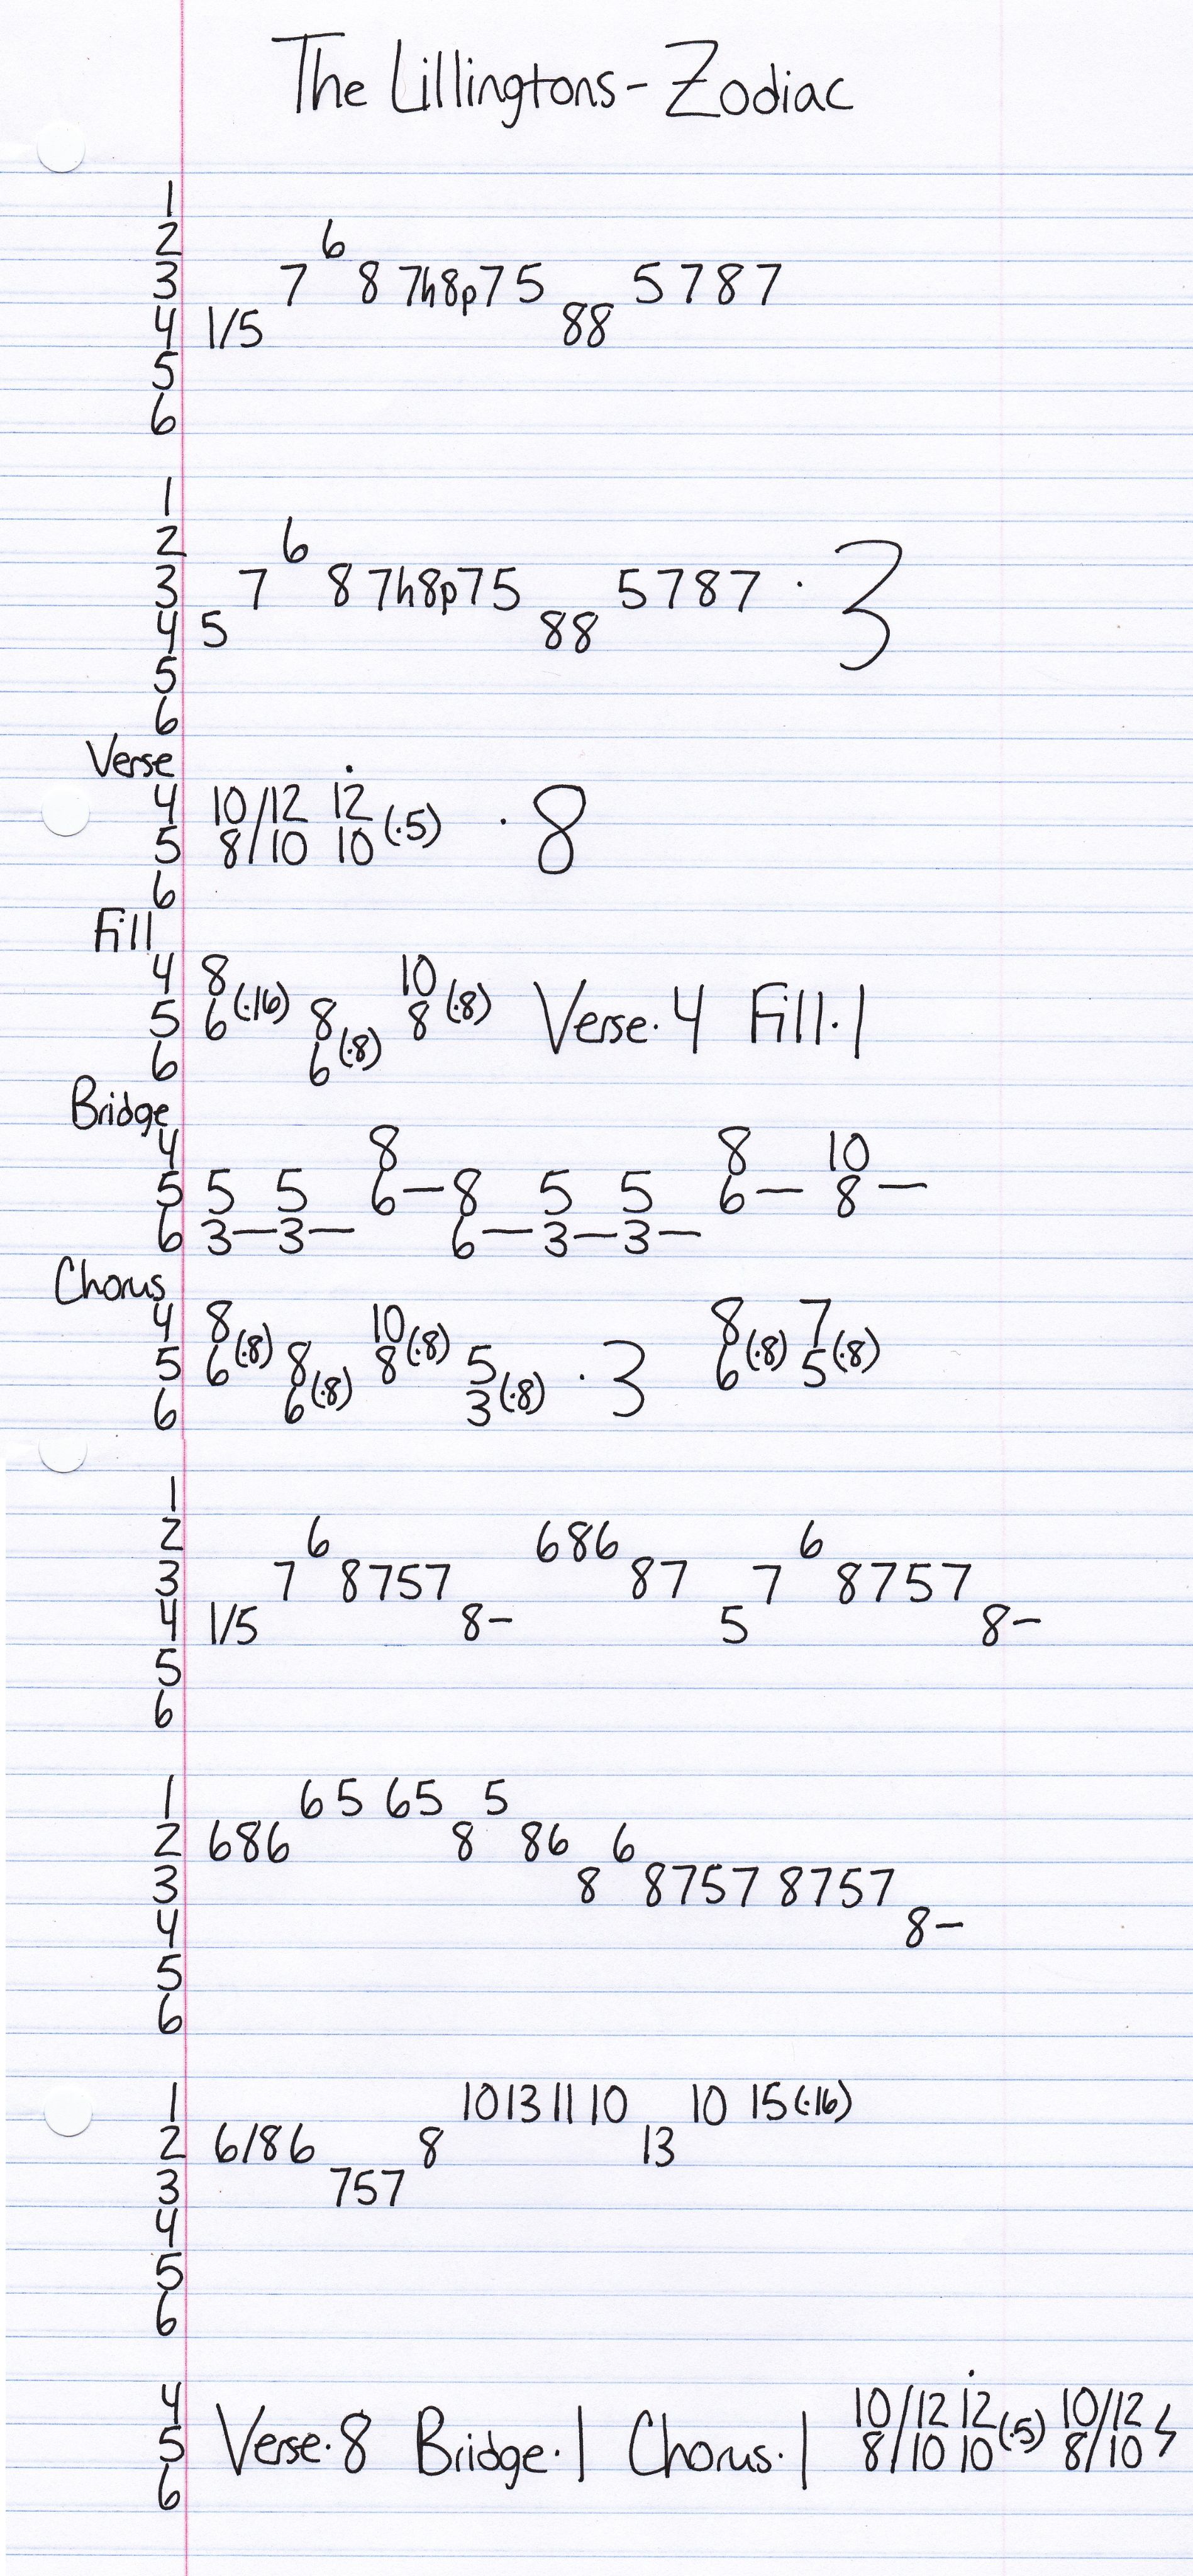 The Lillingtons - Zodiac
1
2 6
3 7 8 7h8p75 5787
4 1/5 88
5
6
1
2 6
3 7 8 7h8p75 5787 · 3
4 5 88
5
6
Verse
4 10/12 12
5 8/10 10 (·5) · 8
6
Fill
4 8 10
5 6(·16) 8 8(·8) Verse·4 Fill·1
6 6(·8)
Bridge
4 8 8 10
5 5 5 6— 8 5 5 6— 8—
6 3—3— 6—3—3—
Chorus
4 8 10 8 7
5 6(·8) 8 8(·8) 5 · 3 6(·8) 5(·8)
6 6(·8) 3(·8)
1
2 6 686 6
3 7 8757 87 7 8757
4 1/5 8– 5 8–
5
6
1 65 65 5
2 686 8 86 6
3 8 8757 8757
4 8–
5
6
1 10 13 11 10 10 15(·16)
2 6/86 8 13
3 757
4
5
6
4 10/12 12 10/12
5 Verse·8 Bridge·1 Chorus·1 8/10 10(·5) 8/10
6